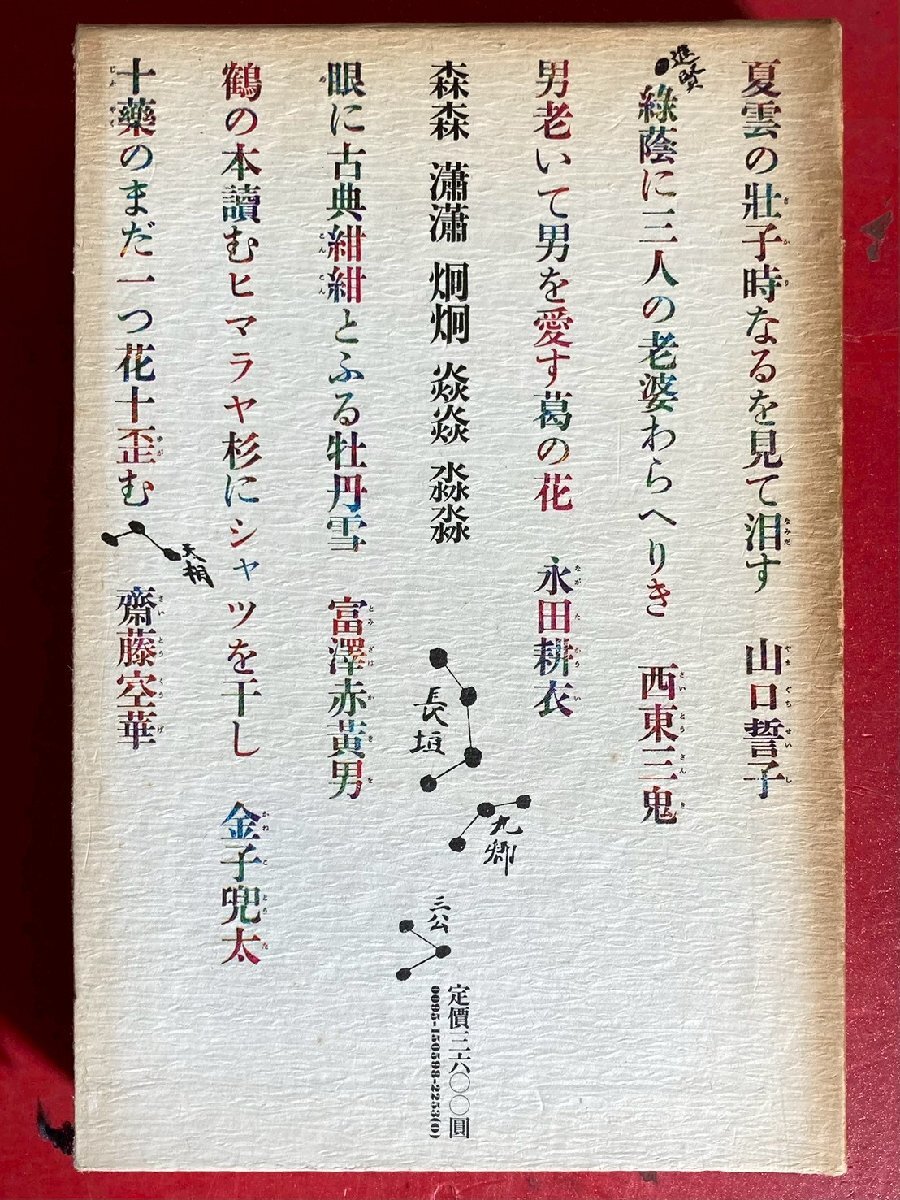 夏雲の壯子時なるを見て泪す　山口誓子
進賢
綠蔭に三人の老婆わらへりき　西東三鬼
男老いて男を愛す葛の花　永田耕衣
森森　瀟瀟　炯炯　焱焱　淼淼
長垣
九卿
三公
定價三六〇〇圓
0095-150598-2253(0)
眼に古典紺紺とふる牡丹雪　富澤赤黃男
鶴の本讀むヒマラヤ杉にシャツを干し　金子兜太
十藥のまだ一つ花十歪む　齋藤空華
天相